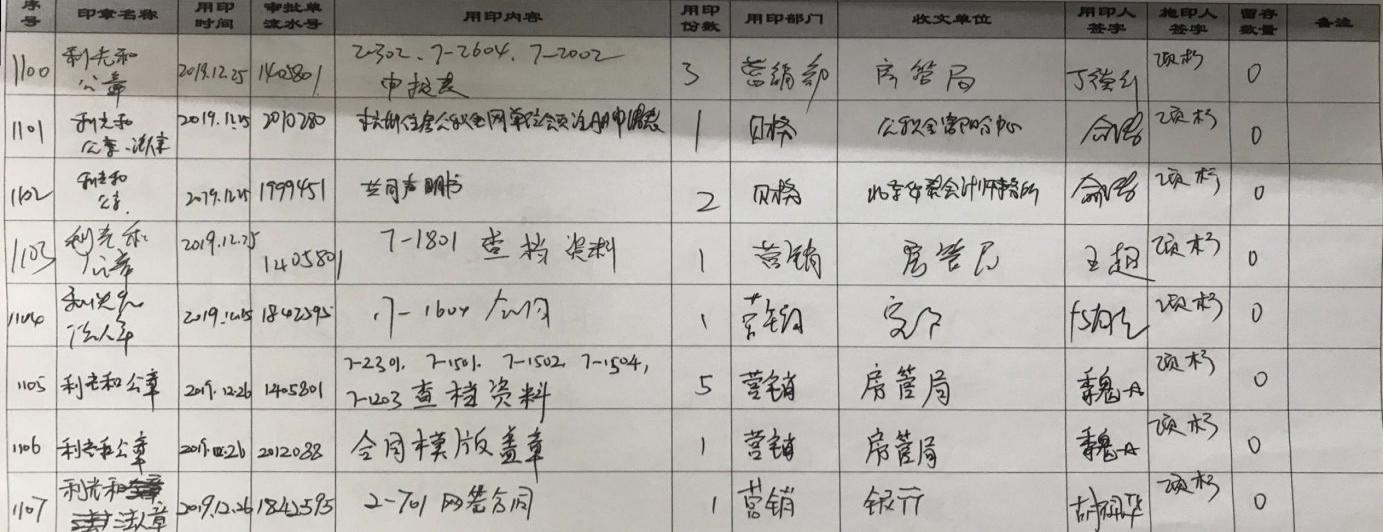 序号 印章名称 用印时间 审批单流水号 用印内容 用印份数 用印部门 收文单位 用印人签字 施印人签字 留存数量 备注
1100 利光和公章 2019.12.25 1405801 2-302、7-2604、7-2002 申报表 3 营销部 房管局 项杉 0
1101 利光和公章、法人章 2019.12.25 2010280 1 财务 公积金 中心 项杉 0
1102 利光和公章 2019.12.25 1999451 共同声明书 2 财务 会计师事务所 项杉 0
1103 利光和公章 2019.12.25 1405801 7-1801 查档资料 1 营销 房管局 王超 项杉 0
1104 利光和法人章 2019.12.25 1842595 7-1604 合同 1 营销 项杉 0
1105 利光和公章 2019.12.26 1405801 7-2301、7-1501、7-1502 7-1504, 7-1203 查档资料 5 营销 房管局 项杉 0
1106 利光和公章 2019.12.26 2012088 合同模版盖章 1 营销 房管局 项杉 0
1107 利光和法人章 2019.12.26 1842595 2-701 网签合同 1 营销 银行 项杉 0